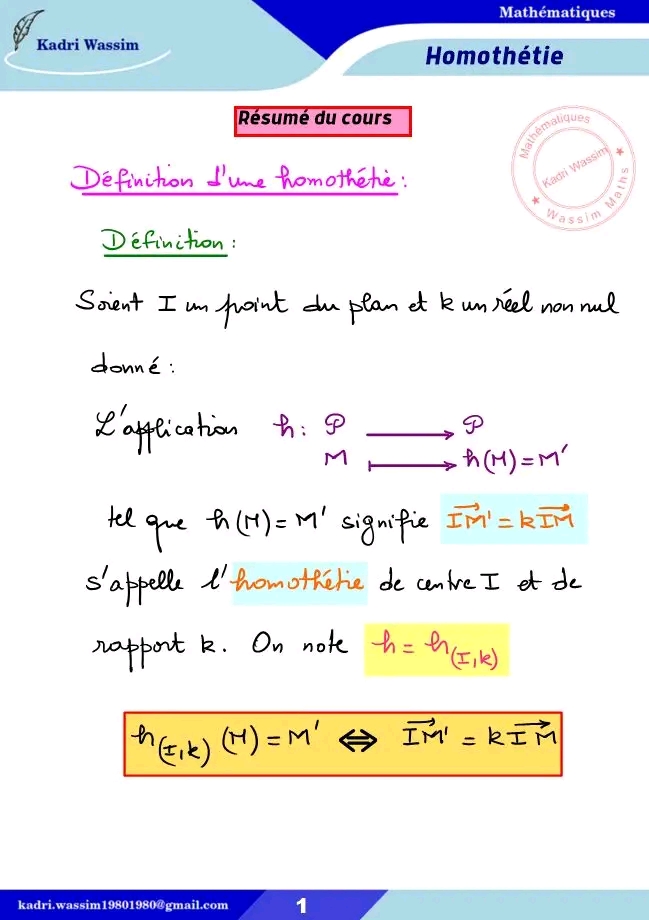 Mathématiques
Kadri Wassim
Homothétie
Résumé du cours
Mathématiques
Kadri Wassim
★ Wassim Maths ★
Définition d'une homothétie :
Définition :
Soient I un point du plan et k un réel non nul
donné :
L'application h : P ⟶ P
M ⟼ h(M) = M'
tel que h(M) = M' signifie $\overrightarrow{IM'} = k\overrightarrow{IM}$
s'appelle l'homothétie de centre I et de
rapport k. On note $h = h_{(I,k)}$
$h_{(I,k)}(M) = M' \Leftrightarrow \overrightarrow{IM'} = k\overrightarrow{IM}$
kadri.wassim19801980@gmail.com
1